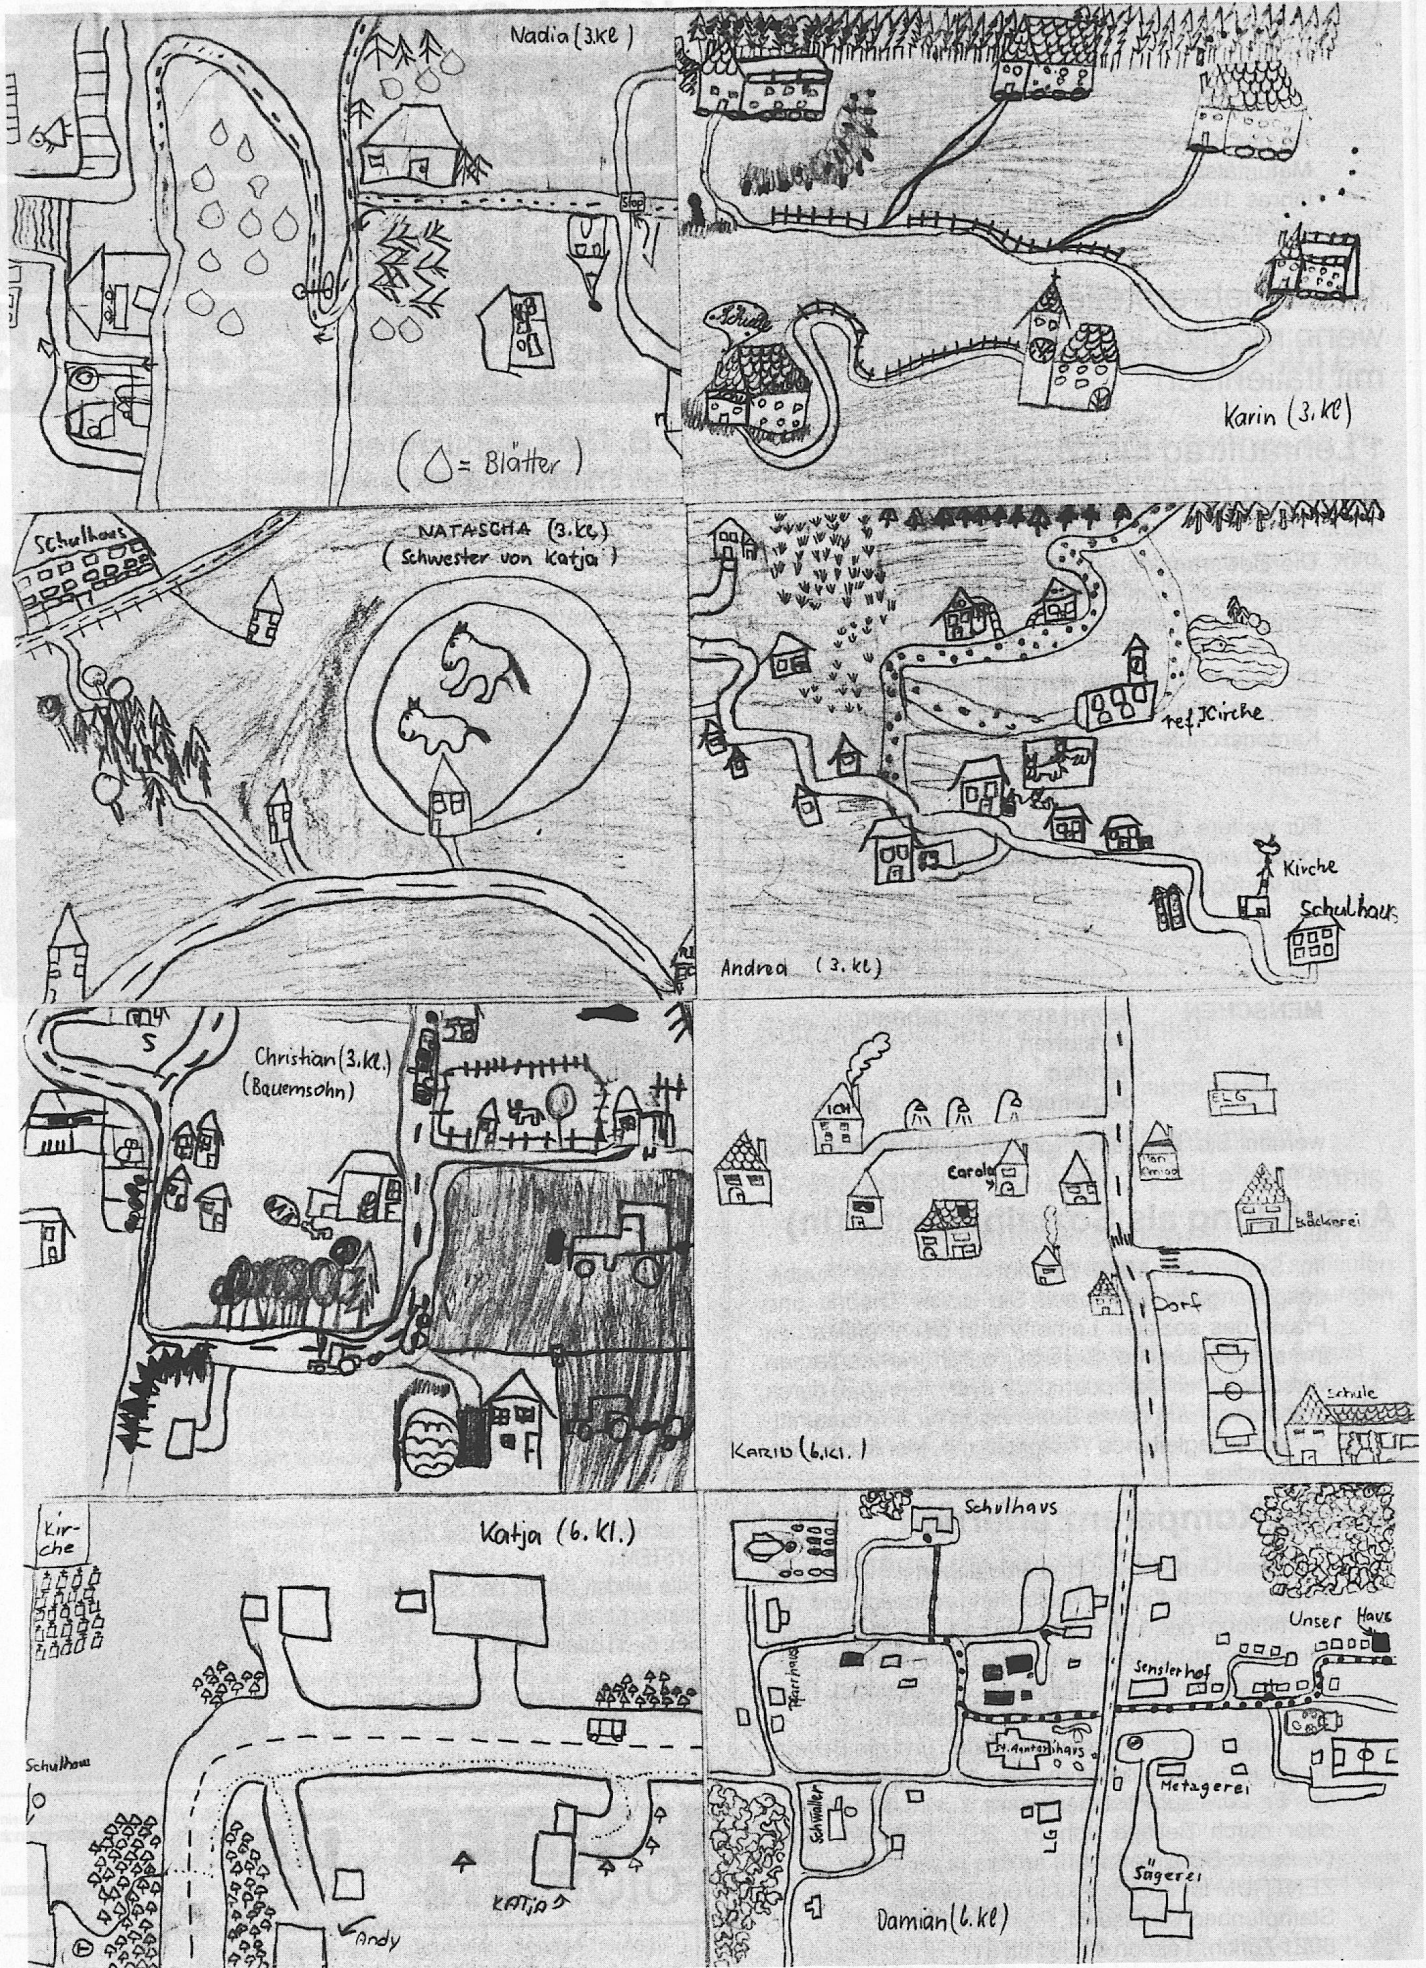 Nadia (3.kl)
Stop
( = Blätter )
Schule
Karin (3.kl)
Schulhaus
NATASCHA (3.kl)
( Schwester von Katja )
ref. Kirche
Kirche
Schulhaus
Andrea (3.kl)
S
Christian (3.kl.)
(Bauernsohn)
ICH
ELG
Carola
Bäckerei
Dorf
Schule
KARIN (6.kl.)
Kir-
che
Katja (6.kl.)
Schulhaus
KATJA
Andy
Schulhaus
Unser Haus
Pfarrhaus
Senslerhof
St. Antonihaus
Metzgerei
Schwaller
LG
Sägerei
Damian (6.kl)